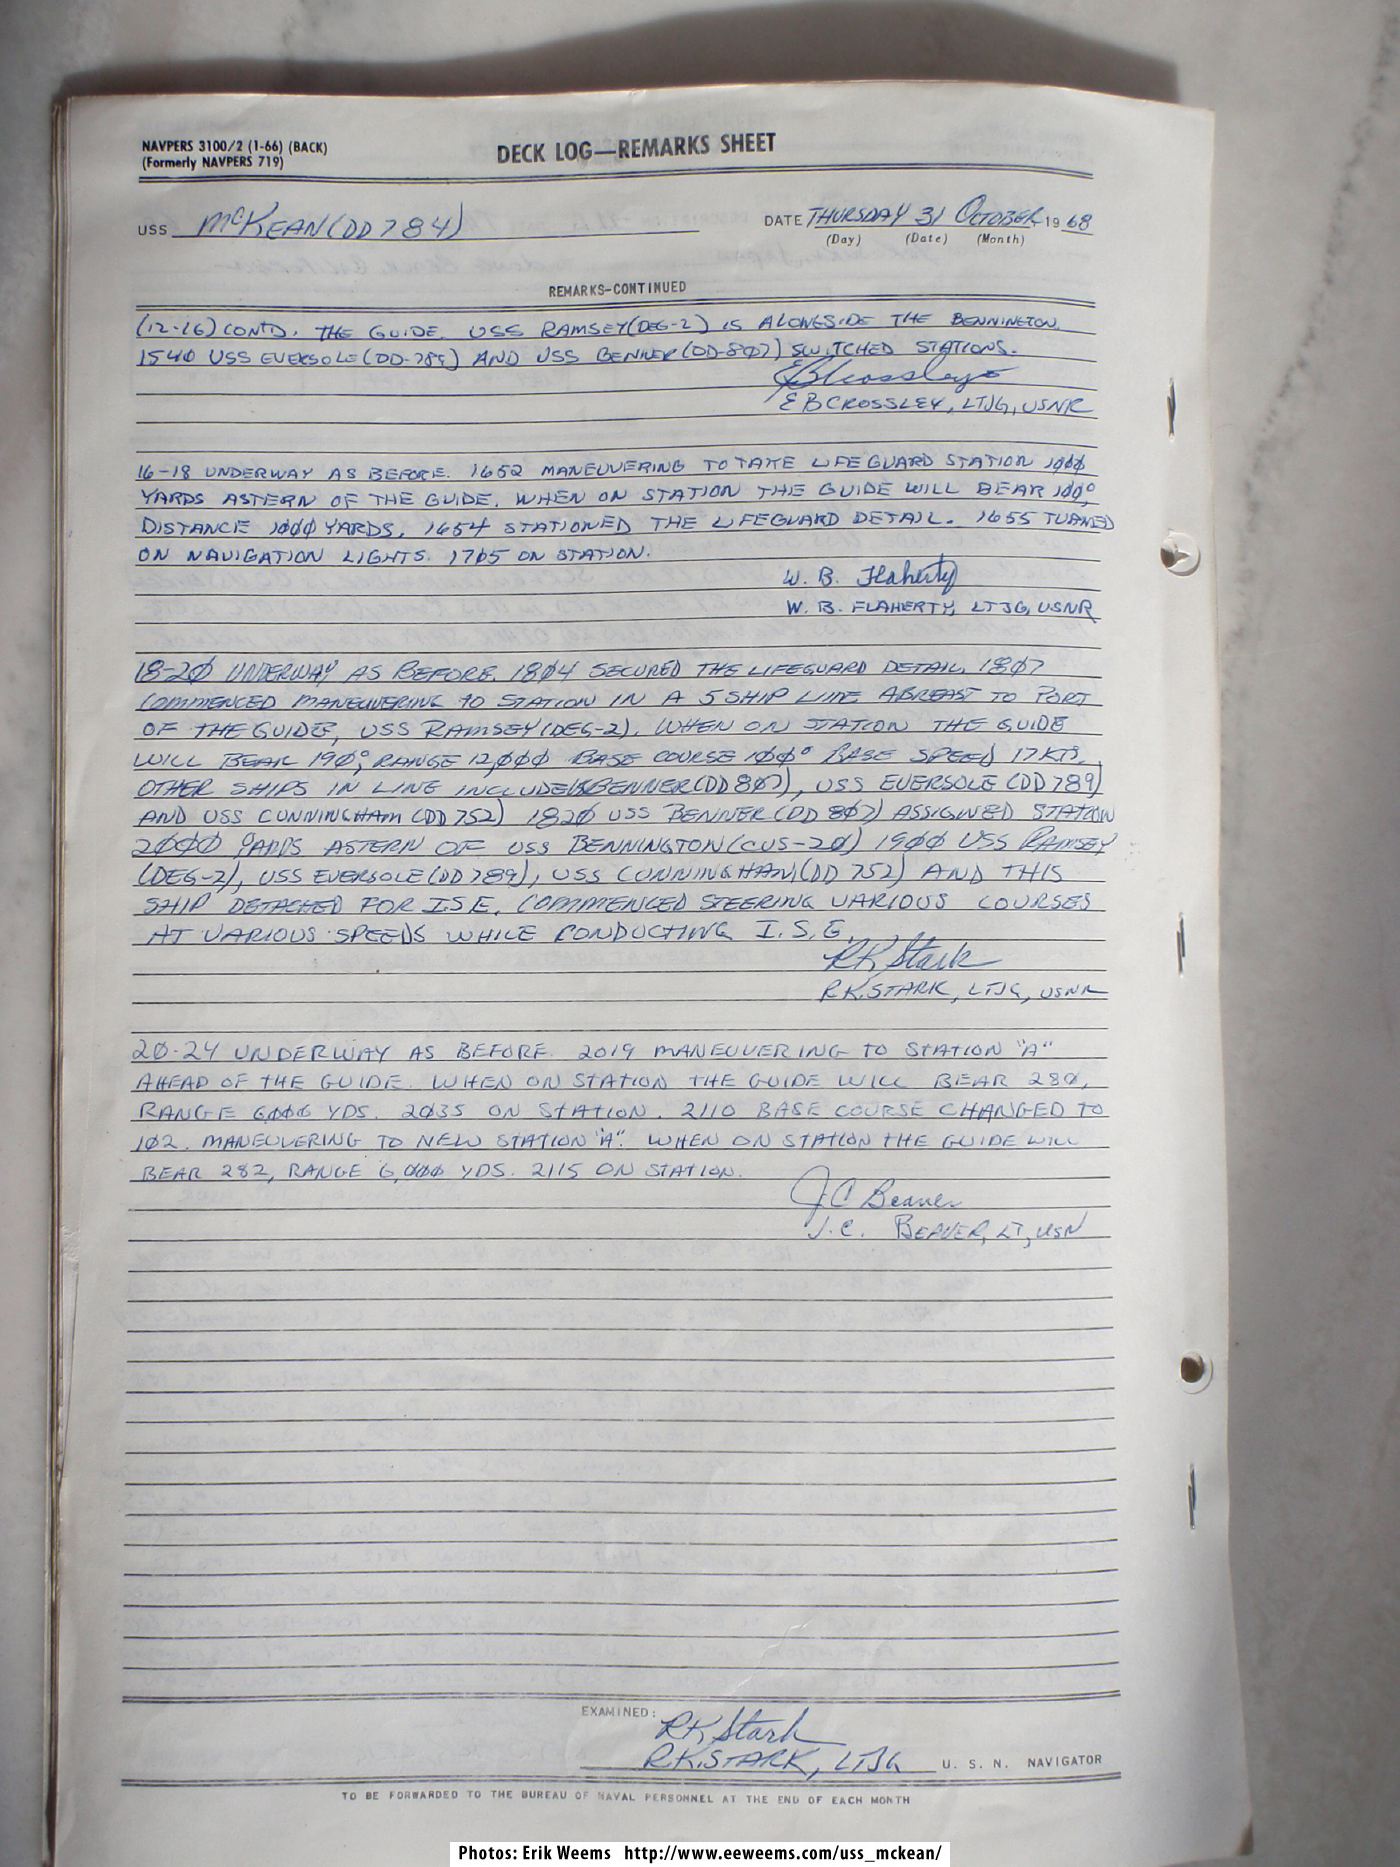 NAVPERS 3100/2 (1-66) (BACK)
(Formerly NAVPERS 719)
DECK LOG—REMARKS SHEET
USS McKEAN (DD784) DATE THURSDAY 31 OCTOBER, 19 68
(Day) (Date) (Month)
REMARKS-CONTINUED
(12-16) CONTD. THE GUIDE. USS RAMSEY(DEG-2) IS ALONGSIDE THE BENNINGTON.
1540 USS EVERSOLE (DD-789) AND USS BENNER (DD-807) SWITCHED STATIONS.
EBCrossley
E B CROSSLEY, LTJG, USNR
16-18 UNDERWAY AS BEFORE. 1652 MANEUVERING TO TAKE LIFEGUARD STATION 1000
YARDS ASTERN OF THE GUIDE. WHEN ON STATION THE GUIDE WILL BEAR 100°
DISTANCE 1000 YARDS. 1654 STATIONED THE LIFEGUARD DETAIL. 1655 TURNED
ON NAVIGATION LIGHTS. 1705 ON STATION.
W. B. Flaherty
W. B. FLAHERTY, LTJG, USNR
18-20 UNDERWAY AS BEFORE. 1804 SECURED THE LIFEGUARD DETAIL. 1807
COMMENCED MANEUVERING TO STATION IN A 5 SHIP LINE ABREAST TO PORT
OF THE GUIDE, USS RAMSEY (DEG-2). WHEN ON STATION THE GUIDE
WILL BEAR 190°, RANGE 12,000 BASE COURSE 100° BASE SPEED 17 KTS.
OTHER SHIPS IN LINE INCLUDE BENNER (DD 807), USS EVERSOLE (DD 789)
AND USS CUNNINGHAM (DD 752) 1820 USS BENNER (DD 807) ASSIGNED STATION
2000 YARDS ASTERN OF USS BENNINGTON (CVS-20) 1900 USS RAMSEY
(DEG-2), USS EVERSOLE (DD 789), USS CUNNINGHAM (DD 752) AND THIS
SHIP DETACHED FOR I.S.E. COMMENCED STEERING VARIOUS COURSES
AT VARIOUS SPEEDS WHILE CONDUCTING I.S.E.
RK Stark
R K. STARK, LTJG, USNR
20-24 UNDERWAY AS BEFORE. 2019 MANEUVERING TO STATION "A"
AHEAD OF THE GUIDE. WHEN ON STATION THE GUIDE WILL BEAR 280,
RANGE 6000 YDS. 2035 ON STATION. 2110 BASE COURSE CHANGED TO
102. MANEUVERING TO NEW STATION "A". WHEN ON STATION THE GUIDE WILL
BEAR 282, RANGE 6,000 YDS. 2115 ON STATION.
J C Beaver
J. C. BEAVER, LT, USN
EXAMINED:
RK Stark
R.K. STARK, LTJG U. S. N. NAVIGATOR
TO BE FORWARDED TO THE BUREAU OF NAVAL PERSONNEL AT THE END OF EACH MONTH
Photos: Erik Weems http://www.eeweems.com/uss_mckean/